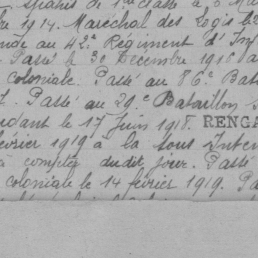 Spahis de 1ère classe à
1914. Maréchal des Logis le
au 42e Régiment d'Inf
Passé le 30 Décembre 1915
coloniale. Passé au 86e Bat
Passé au 29e Bataillon
dant le 17 Juin 1918. RENGA
février 1919 à la sous Inten
à compter dudit jour. Passé
coloniale le 14 février 1919. Pa